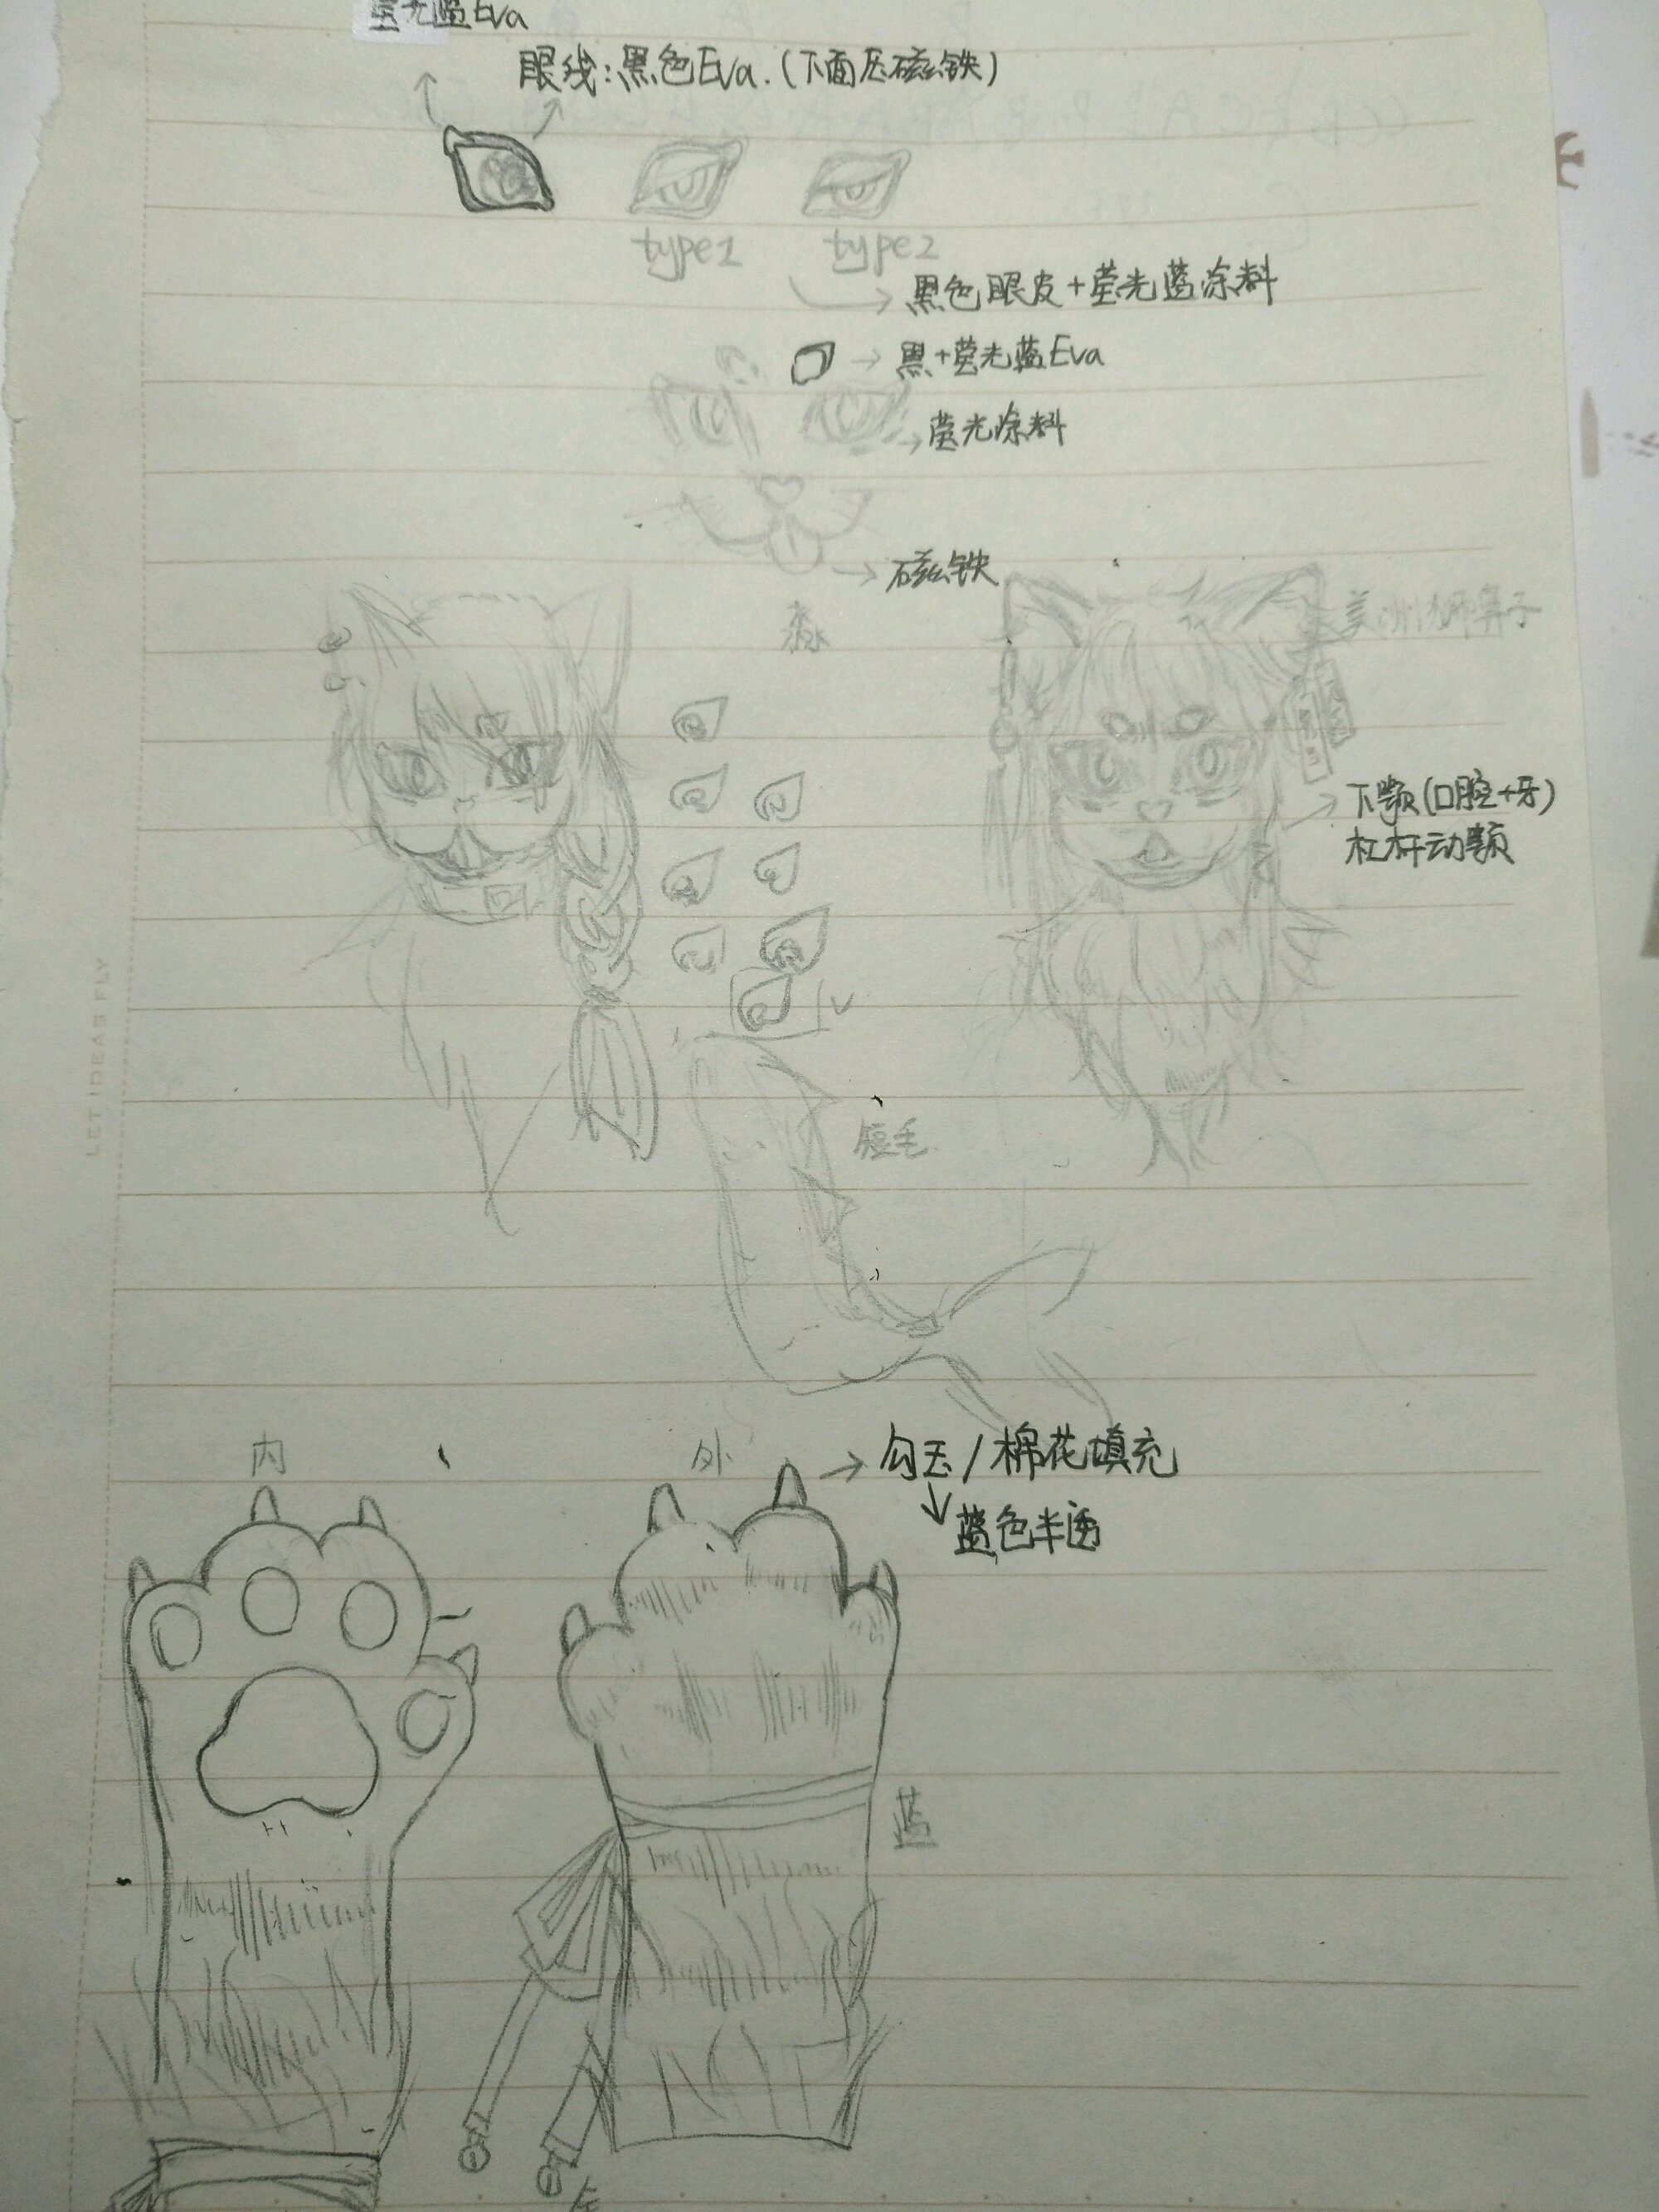 荧光蓝Eva
眼线:黑色Eva.(下面压磁铁)
type1
type2
黑色眼皮+荧光蓝涂料
黑+荧光蓝Eva
荧光涂料
磁铁
美洲狮鼻子
下颚(口腔+牙)
杠杆动颚
短毛
LET IDEAS FLY
内
外
勾玉/棉花填充
蓝色半透
蓝